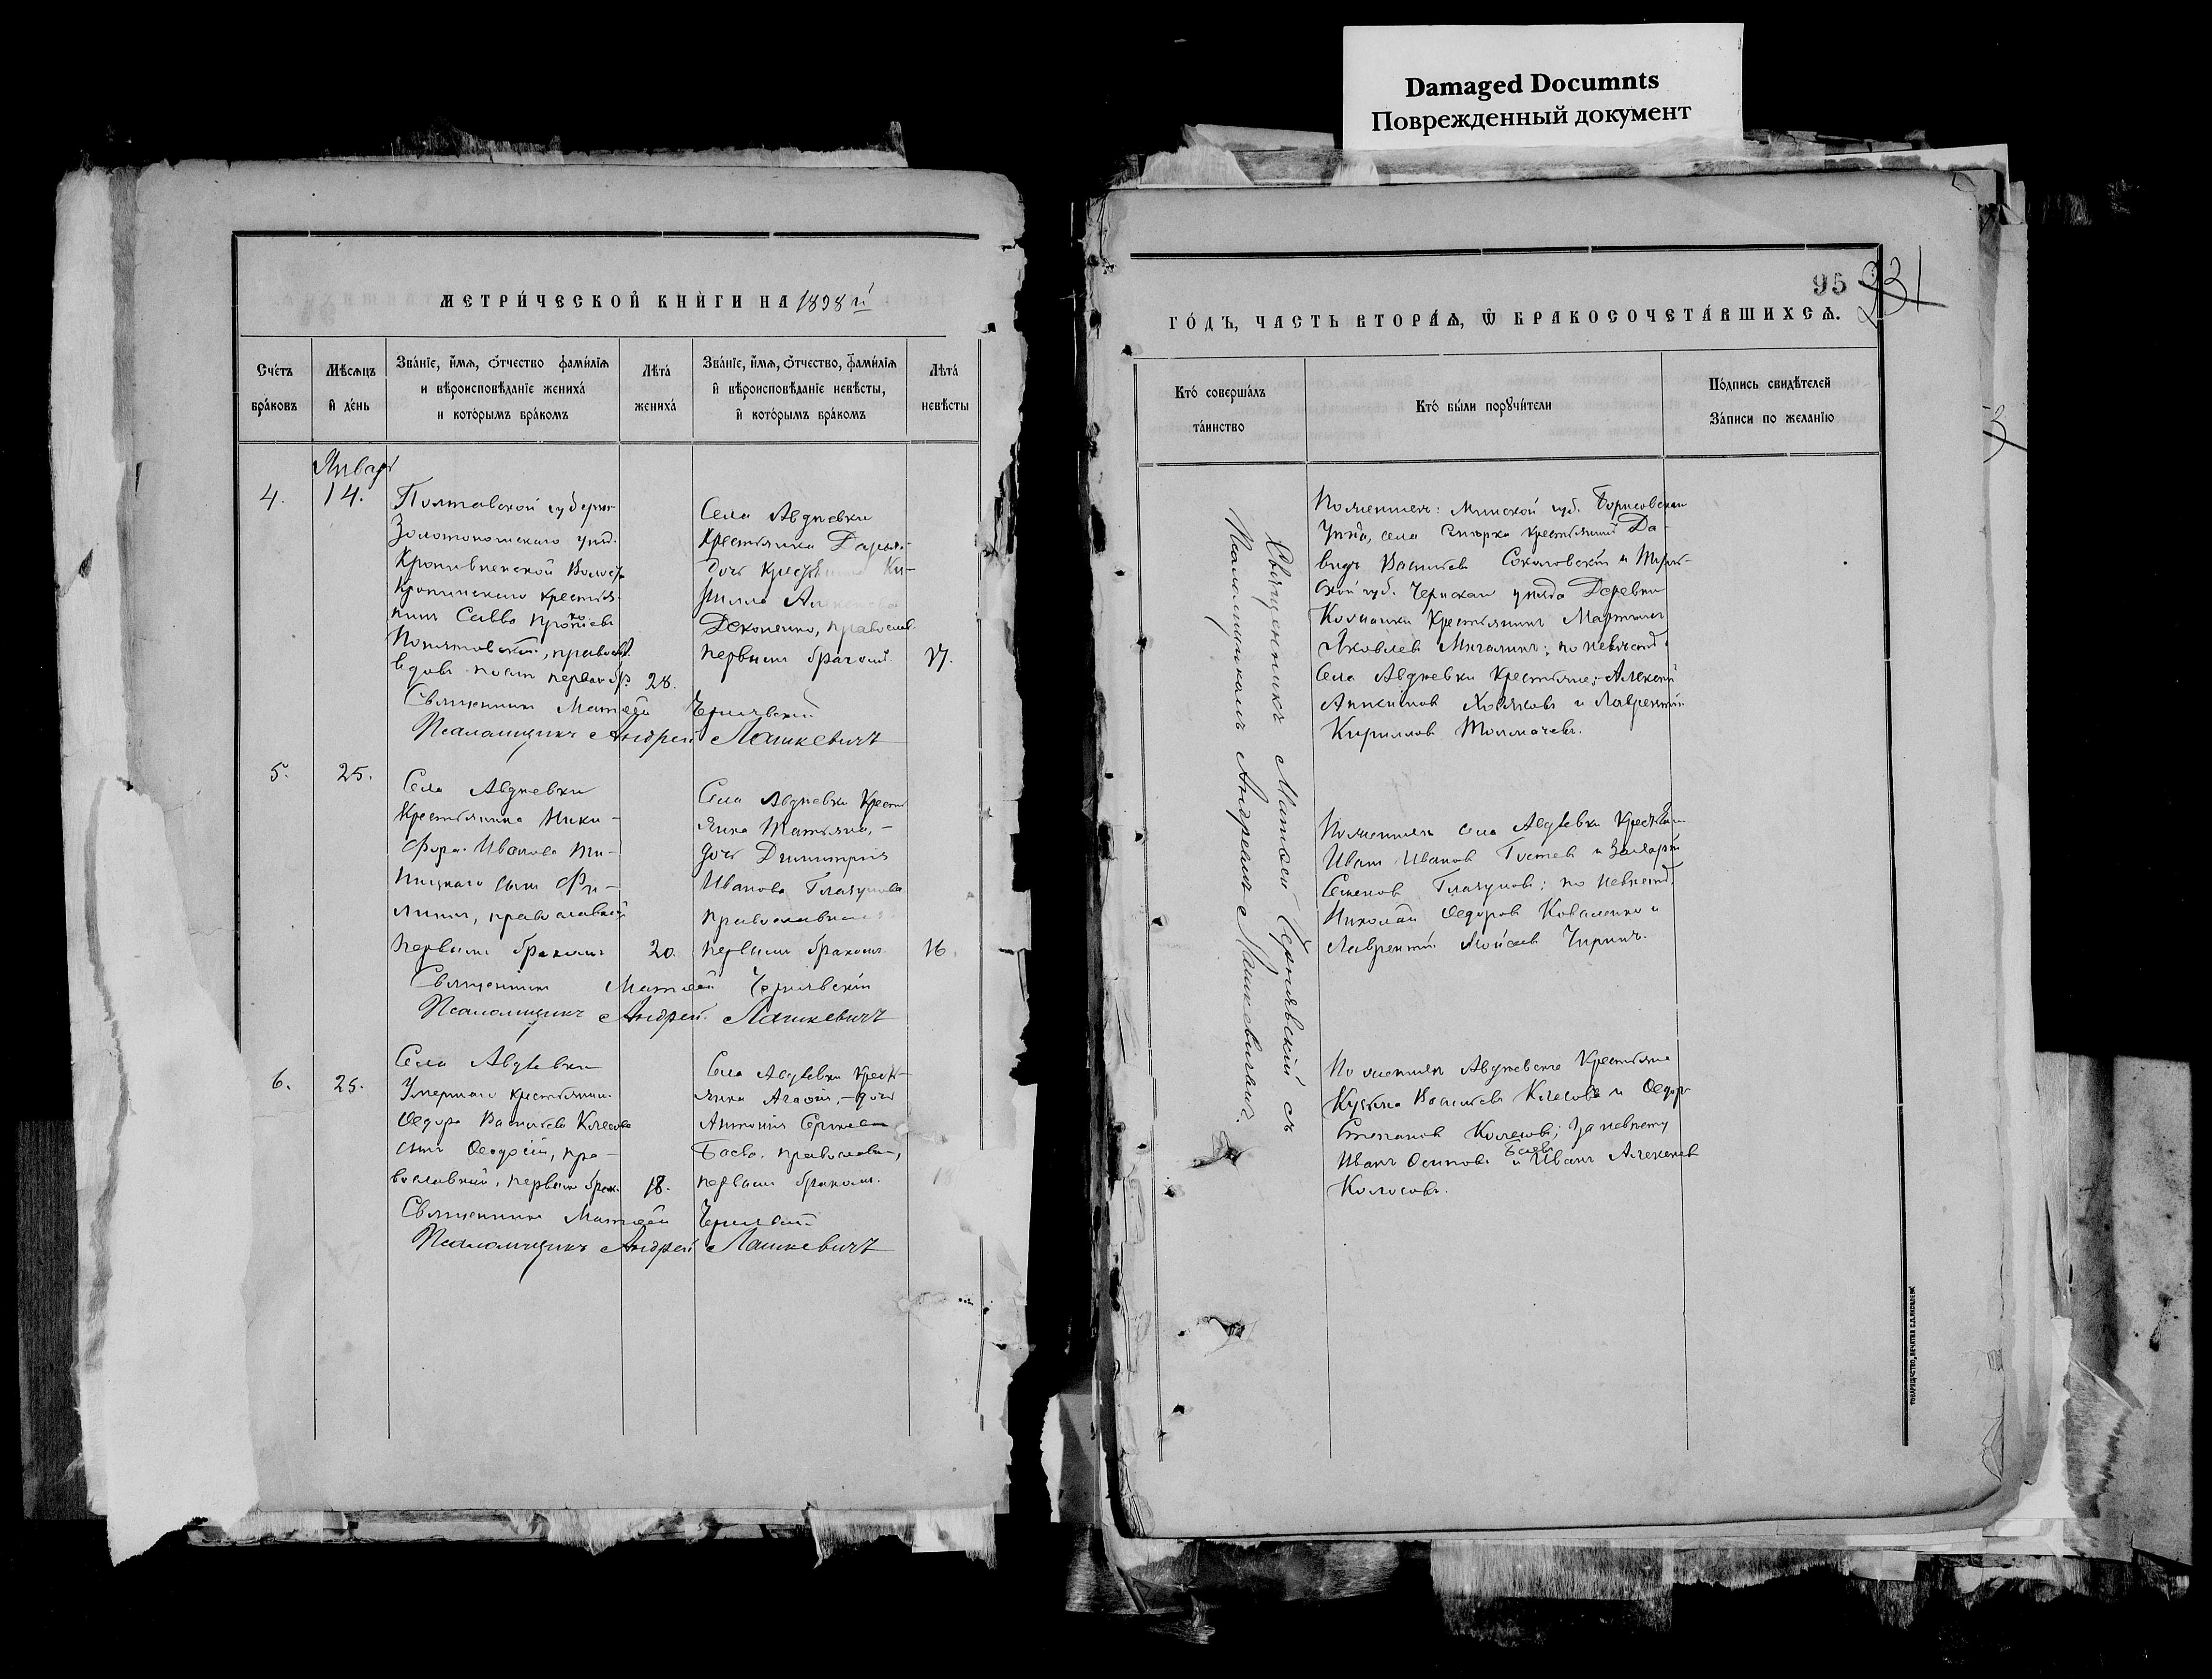 Damaged Documnts
Поврежденный документ
МЕТРИ́ЧЕСКОЙ КНИ́ГИ НА 1898 й
Сче́тъ бра́ковъ
Мѣсяцъ и҆ де́нь
Зва́нїе, и҆́мѧ, ѻ҆́тчество фами́лїѧ
и вѣроисповѣ́данїе жениха́
и кото́рымъ бра́комъ
Лѣта́ жениха́
Зва́нїе, и҆́мѧ, ѻ҆́тчество, фами́лїѧ
и҆ вѣроисповѣ́данїе невѣ́сты,
и҆ кото́рымъ бра́комъ
Лѣта́ невѣ́сты
Январ
4.
14.
Полтавской губерн
Золотоношскаго уѣзд.
Кропивненской Волос
крестья-
нинъ Савва
Понятовскій, правосл.
вдовъ послѣ перваго бр.
28.
Села Авдѣевки
Крестьянка Дарья
дочь Ки-
рилла Алексѣева
Деконенко, правосл.
первымъ бракомъ
17.
Священникъ Матѳей Чернявскій
Псаломщикъ Андрей Лашкевичъ
5.
25.
Села Авдѣевки
Крестьянина Ники-
фора Иванова
сынъ Фи-
липпъ, православный
первымъ бракомъ
20.
Села Авдѣевки Крест
янка Татьяна, -
дочь Димитрія
Иванова Глазунова
православная
первымъ бракомъ
16.
Священникъ Матѳей Чернявскій
Псаломщикъ Андрей Лашкевичъ
6.
25.
Села Авдѣевки
Умершаго крестьянина
Ѳедора Васильева Колесова
сынъ Ѳеодосій, пра-
вославный, первымъ брак.
18.
Села Авдѣевки Крест-
янка Агафія, - дочь
Антонія
Баева, православн,
первымъ бракомъ.
18
Священникъ Матѳей Чернявскій
Псаломщикъ Андрей Лашкевичъ
95
231
ГО́ДЪ, ЧАСТЬ ВТОРА́Ѧ, Ѽ БРАКОСОЧЕТА́ВШИХСѦ.
Кто́ соверша́лъ
та́инство
Кто́ бы́ли порꙋчи́тели
По́дпись свидѣ́телей
За́писи по жела́нїю
3
Священникъ Матѳей Чернявскій съ
Псаломщикомъ Андреемъ Лашкевичемъ.
По женихѣ: Минской губ. Борисовскаго
Уѣзда, села крестьянинъ Да-
видъ Васильевъ Соколовскій и Туль-
ской губ. Чернскаго уѣзда Деревни
Крестьянинъ Мартинъ
Яковлевъ Мигалинъ; по невѣстѣ:
Села Авдѣевки Крестьяне: Алексѣй
Хомяковъ и Лаврентій
Кирилловъ Толмачевъ.
По женихѣ села Авдѣевки Крестьяне
Иванъ Ивановъ Гостевъ и Захарій
Семеновъ Глазуновъ; по невѣстѣ.
Николай Ѳедоровъ Коваленко и
Лаврентій Мойсеевъ Чиринъ.
По женихѣ Авдѣевскіе Крестьяне
Кузьма Васильевъ Колесовъ и Ѳедоръ
Степановъ Колесовъ; За невѣсту
Иванъ Осиповъ Баевъ и Иванъ Алексѣевъ
Колосовъ.